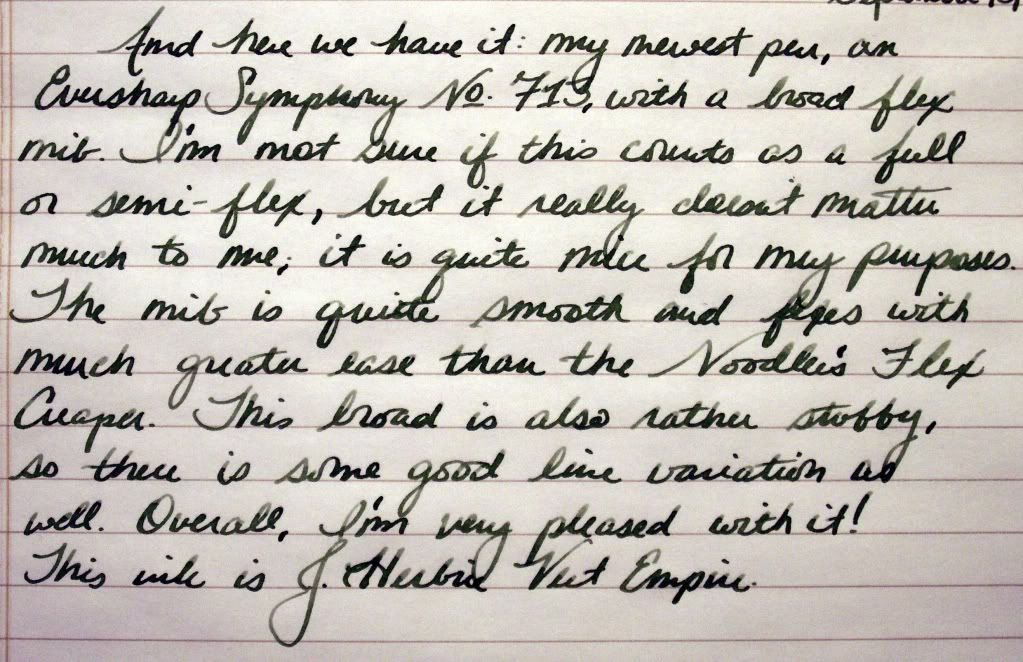 And here we have it: my newest pen, an
Eversharp Symphony No. 713, with a broad flex
nib. I'm not sure if this counts as a full
or semi-flex, but it really doesn't matter
much to me; it is quite nice for my purposes.
The nib is quite smooth and flexes with
much greater ease than the Noodler's Flex
Creaper. This broad is also rather stubby,
so there is some good line variation as
well. Overall, I'm very pleased with it!
This ink is J. Herbin Vert Empire.